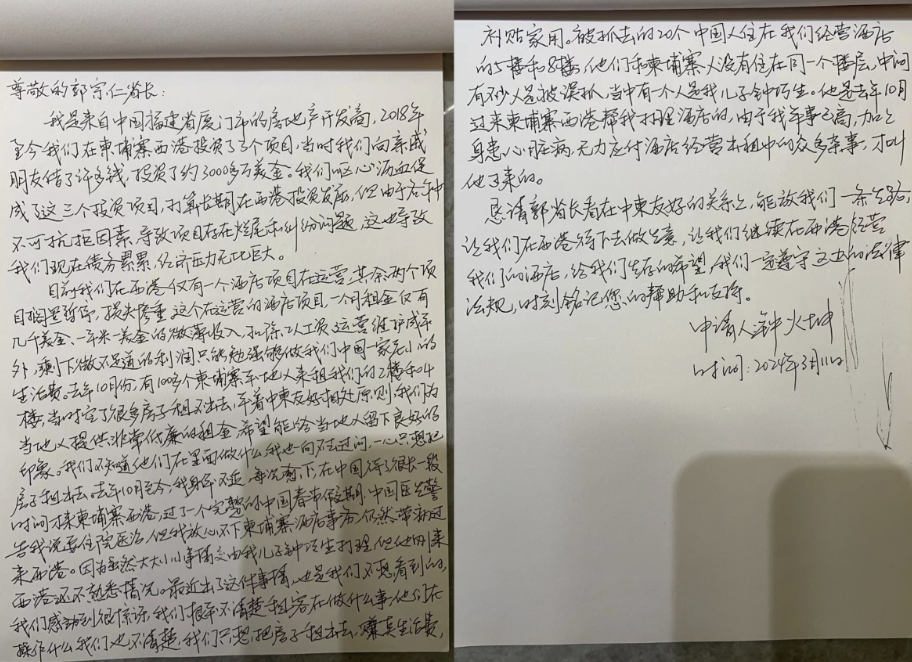 尊敬的郭宗仁省长:
我是来自中国福建省厦门市的房地产开发商,2018年
至今我们在柬埔寨西港投资了三个项目,当时我们向亲戚
朋友借了许多钱,投资了约3000多万美金。我们呕心沥血促
成了这三个投资项目,打算长期在西港投资发展,但由于各种
不可抗拒因素,导致项目存在烂尾和纠纷问题,这也导致
我们现在债务累累,经济压力无比巨大。
目前我们在西港仅有一个酒店项目在运营,其余两个项
目搁置暂停,损失惨重,这个在运营的酒店项目,一个月租金仅有
几千美金、一平米一美金的微薄收入,扣除人工资,运营维护成本
外,剩下微不足道的利润只能勉强够做我们中国一家老小的
生活费。去年10月份,有100多个柬埔寨本地人来租我们的2楼和4
楼,当时空了很多房子租不出去,本着中柬友好相处原则,我们为
当地人提供非常低廉的租金,希望能给当地人留下良好的
印象。我们不知道他们在里面做什么,我也一向不去过问,一心只想把
房子租出去。去年10月至今,我身体不适,每况愈下,在中国待了很长一段
时间才来柬埔寨西港,过了一个完整的中国春节假期,中国医生警
告我说要住院医治,但我放心不下柬埔寨酒店事务,仍然带病过
来西港。因为虽然大大小小事情交由我儿子钟巧生打理,但他刚来
西港还不熟悉情况。最近出了这件事情,也是我们不想看到的,
我们感动到很惊讶,我们根本不清楚租客在做什么事,他们在
操作什么我们也不清楚,我们只想把房子租出去,赚点生活费,
补贴家用。被抓去的20个中国人住在我们经营酒店
的5楼和8楼,他们和柬埔寨人没有住在同一个楼层,中间
有不少人是被误抓,当中有一个人是我儿子钟巧生。他是去年10月
过来柬埔寨西港帮我打理酒店的,由于我年事已高,加之
身患心脏病,无力应付酒店经营出租中的众多杂事,才叫
他过来的。
恳请郭省长看在中柬友好的关系上,能放我们一条生路,
让我们在西港待下去做生意,让我们继续在西港经营
我们的酒店,给我们生存的希望,我们一定遵守这边的法律
法规,时刻铭记您的帮助和支持。
申请人:钟火坤
时间:2024年3月11日